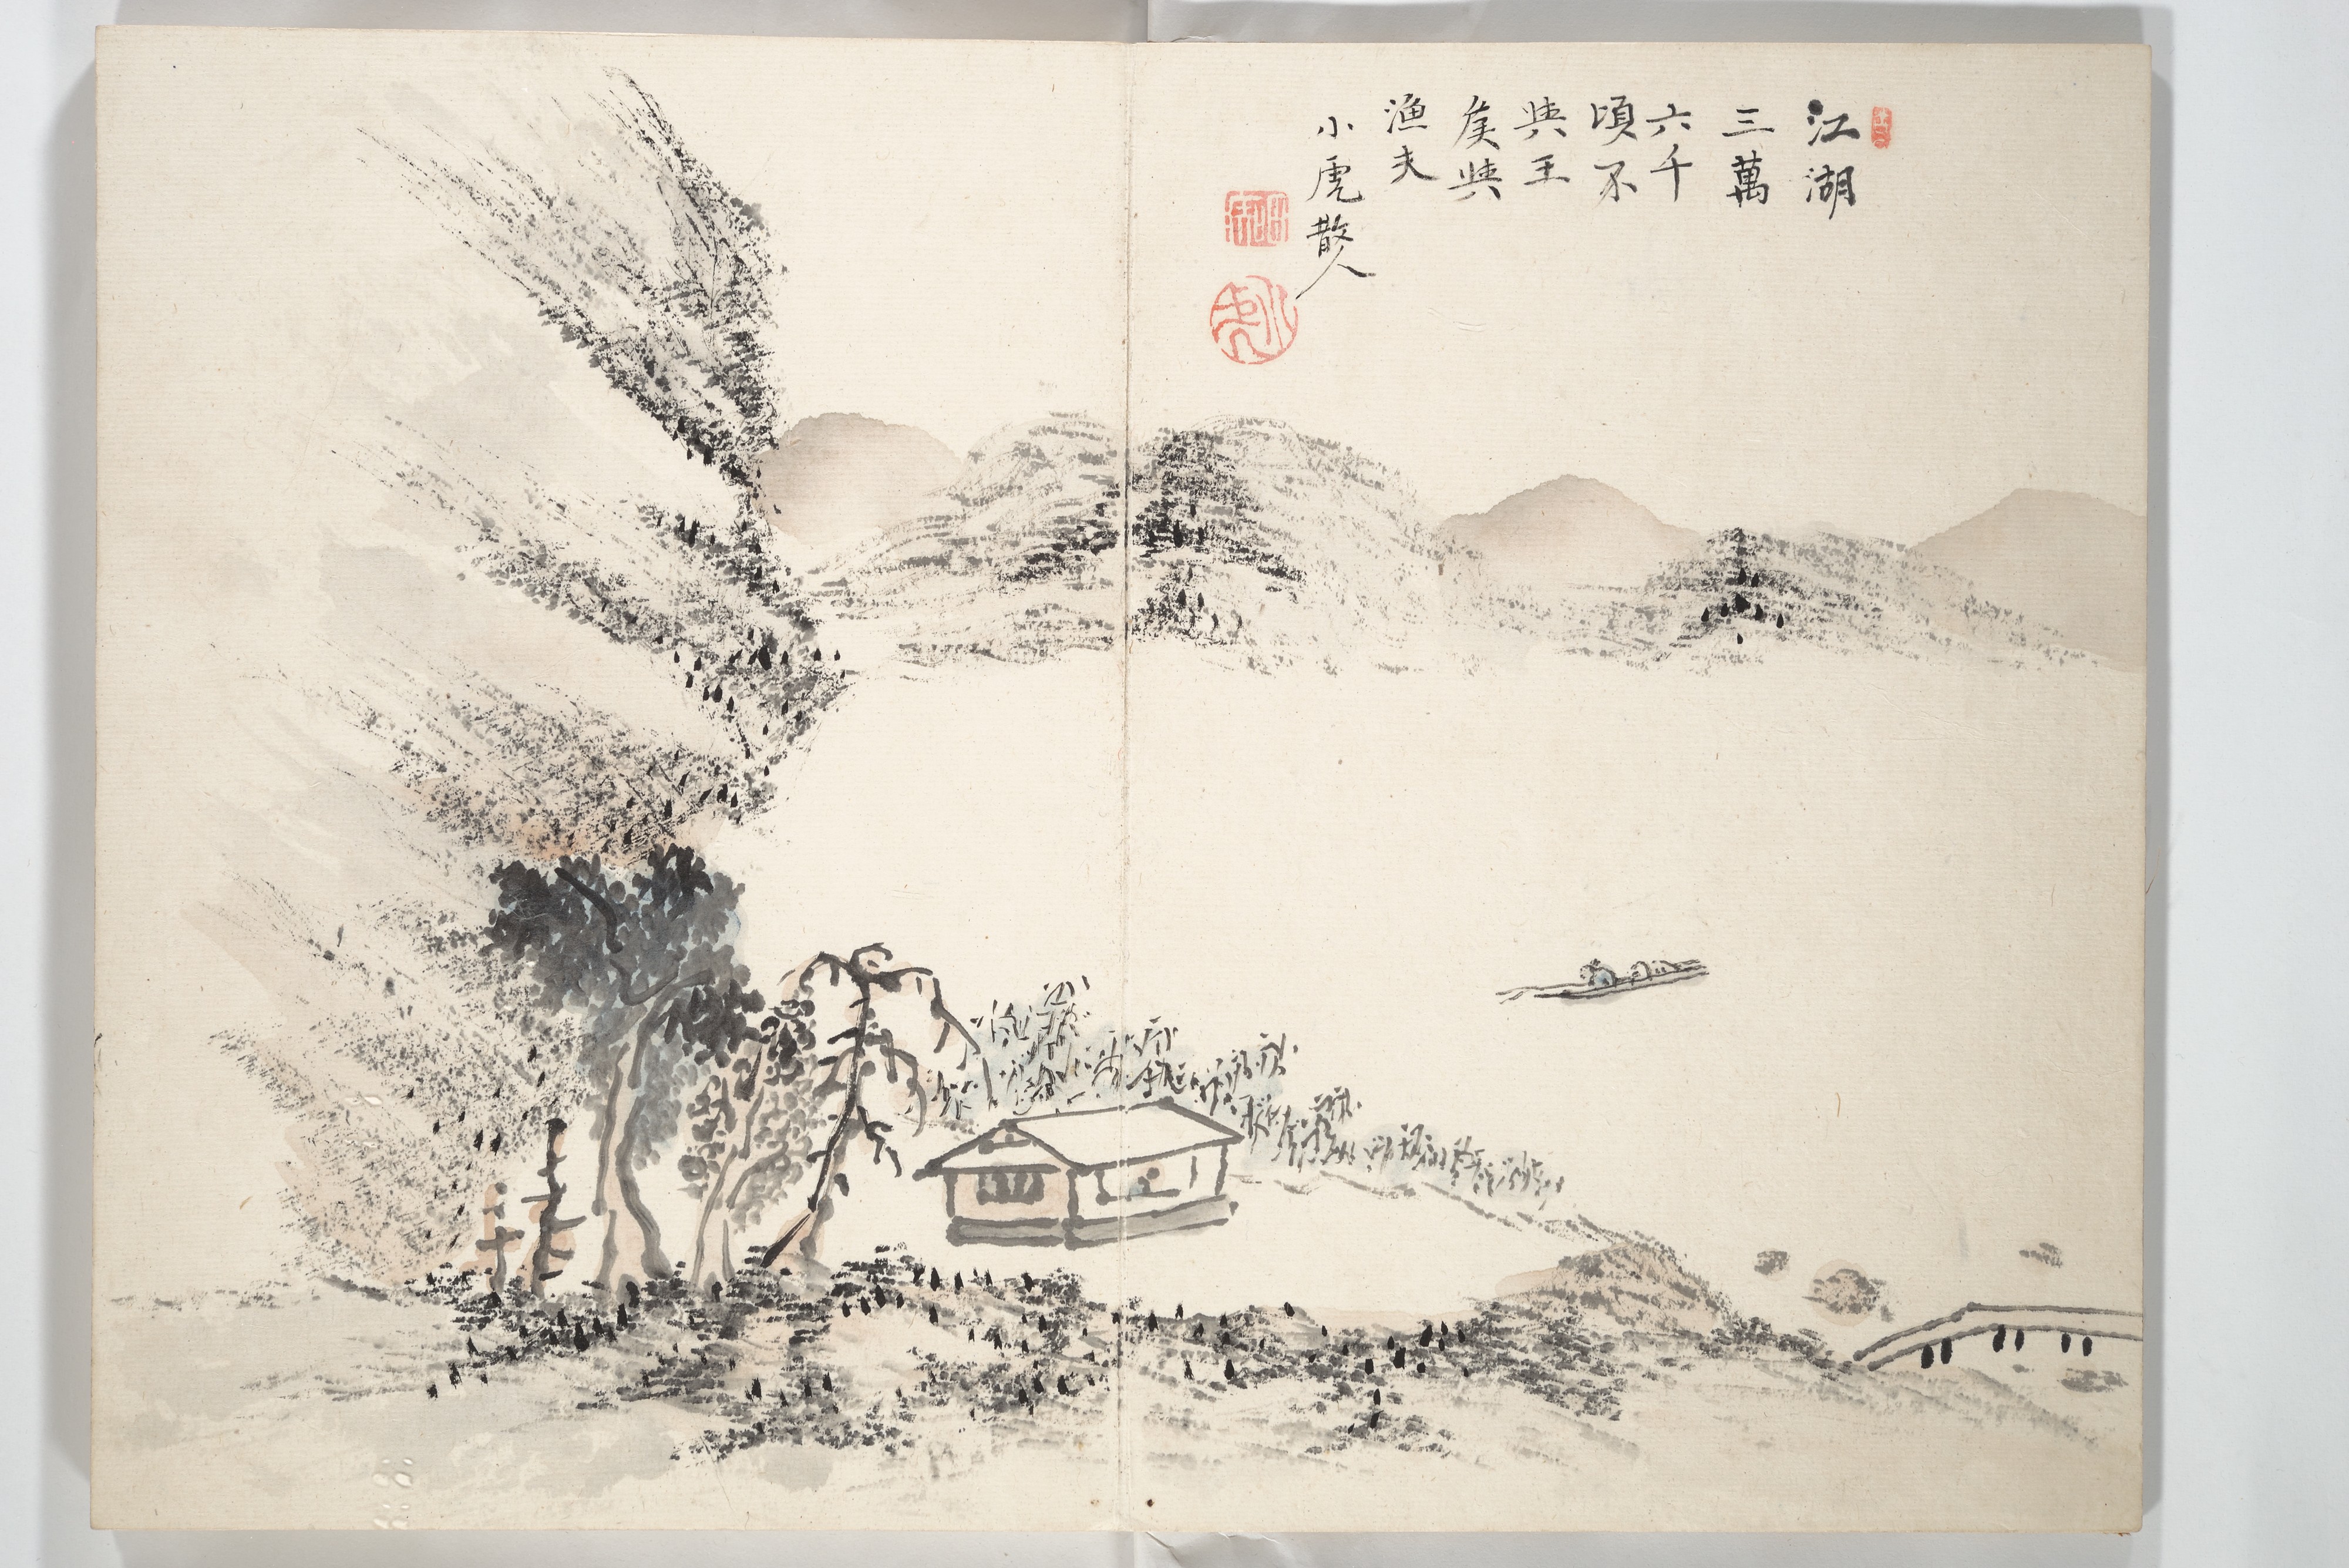 江湖
三萬
六千
頃不
與王
矦與
漁夫
小虎散人